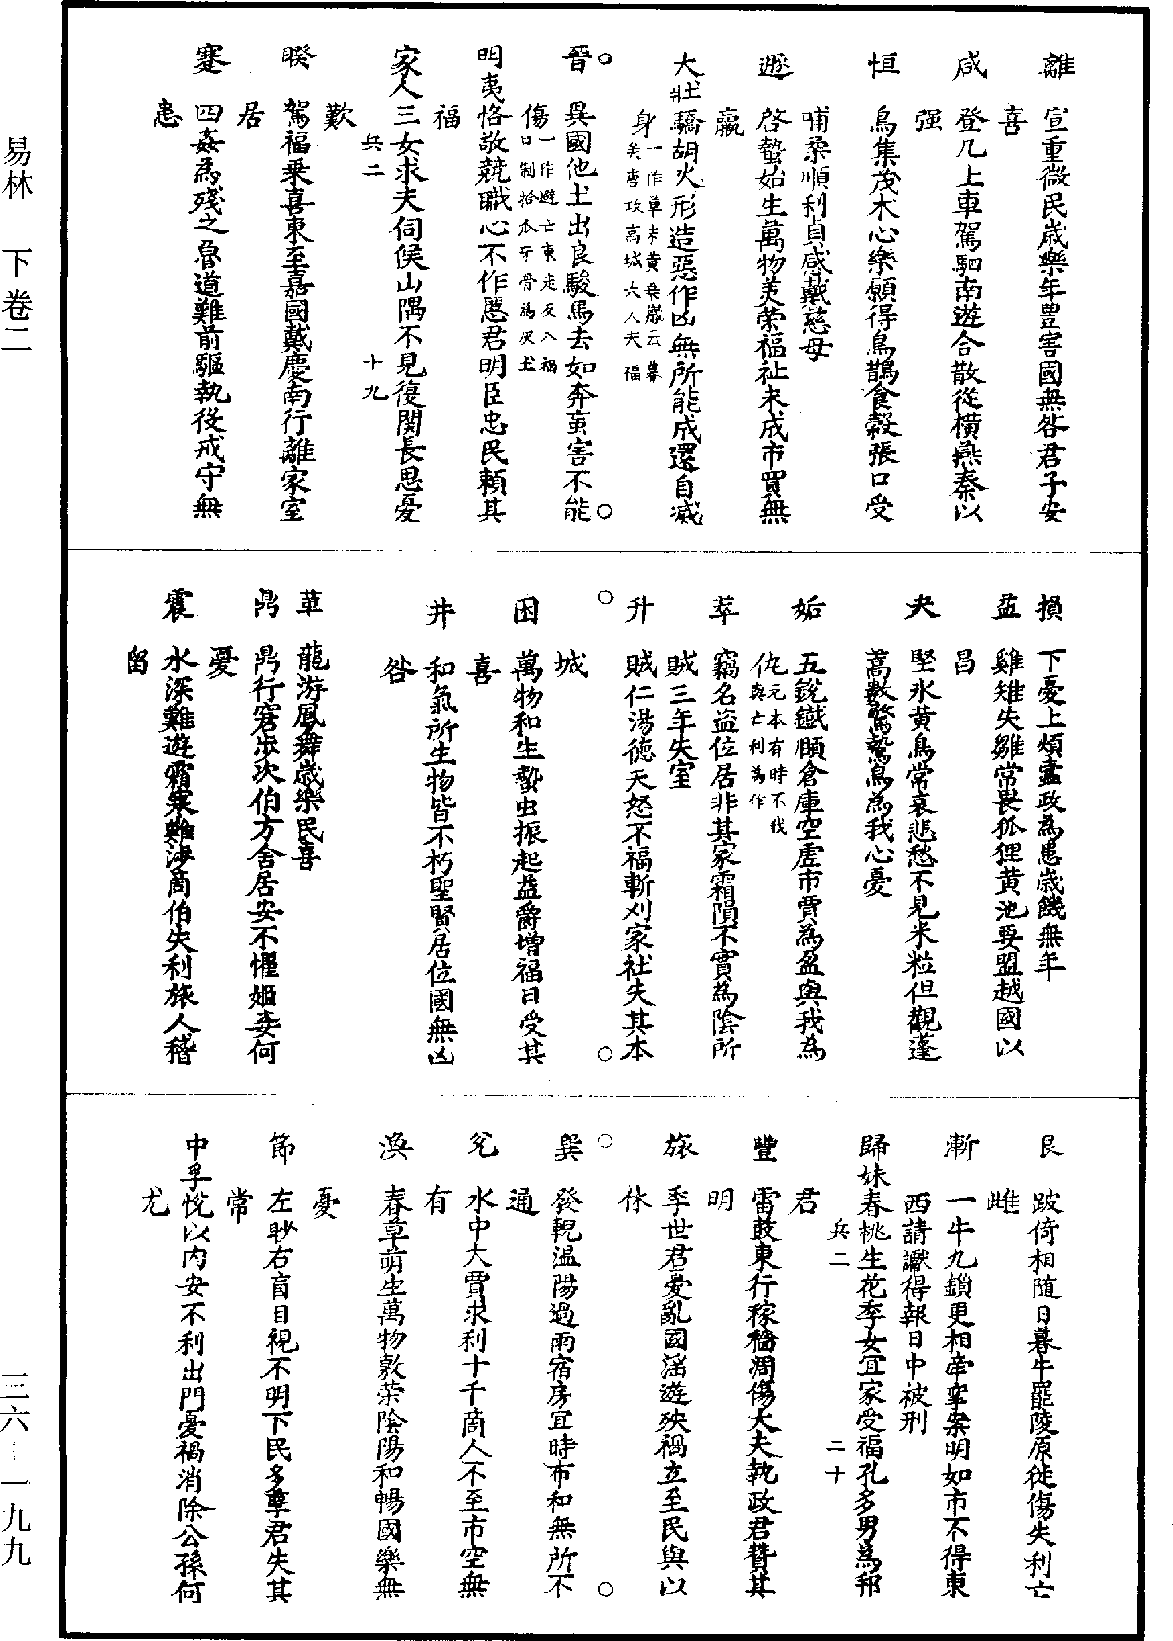 易林 下卷二
三六－一九九
離 宣重微民歲樂年豊害國無咎君子安
喜
咸 登几上車駕駟南遊合散從横燕秦以
强
恒 鳥集茂木心樂願得鳥鵲食穀張口受
哺桑順利貞感戴慈母
遯 啓蟄始生萬物美荣福祉未成市買無
贏
大壮 驕胡火形造惡作凶無所能成還自减
身一作草木黄
矣唐攻高城大人夫福
晉 異國他土出良駿馬去如奔䖟害不能
傷一作避亡東走反入禍
口制拾木牙骨為灰土
明夷 恪敬兢職心不作慝君明臣忠民頼其
福
家人 三女求夫伺候山隅不見復関長思憂
兵二 十九
歎
睽 駕福乗喜東至嘉國戴慶南行離家室
居
蹇 四姦為殘之魯道難前驅執役戒守無
恙
損 下憂上煩蠧政為患歲饑無年
益 雞雉失雛常畏狐狸黄池要盟越國以
昌
夬 堅氷黄鳥常哀悲愁不見米粒但觀蓬
蒿數驚鷙鳥為我心憂
姤 五銳鐵頤倉庫空虚市賈為盈與我為
仇元本有時不我
與亡利為作
萃 竊名益位居非其家霜隕不實為陰所
賊三年失室
升 賊仁湯德天怒不福斬刈家社失其本
城
困 萬物和生蟄虫振起益爵增福日受其
喜
井 和氣所生物皆不朽聖賢居位國無凶
咎
革 龍游鳳舞歲樂民喜
鼎 鼎行窘步次伯方舍居安不懼姬妾何
憂
震 水深難遊霜寒難涉商伯失利旅人稽
留
艮 跛倚相随日暮牛罷陵原徙傷失利亡
雌
漸 一牛九鎖更相牽攣案明如市不得東
西請讞得報日中被刑
歸妹 春桃生花季女宜家受福孔多男為邦
兵二 二十
君
豐 雷鼓東行稼穡凋傷大夫執政君贊其
明
旅 季世君憂亂國滛遊殃禍立至民與以
休
巽 發軔温陽過雨宿房宜時布和無所不
通
兊 水中大賈求利十千商人不至市空無
有
渙 春草萌生萬物敷荣陰陽和暢國樂無
憂
節 左眇右盲目視不明下民多孽君失其
常
中孚 恱以内安不利出門憂禍消除公孫何
尤